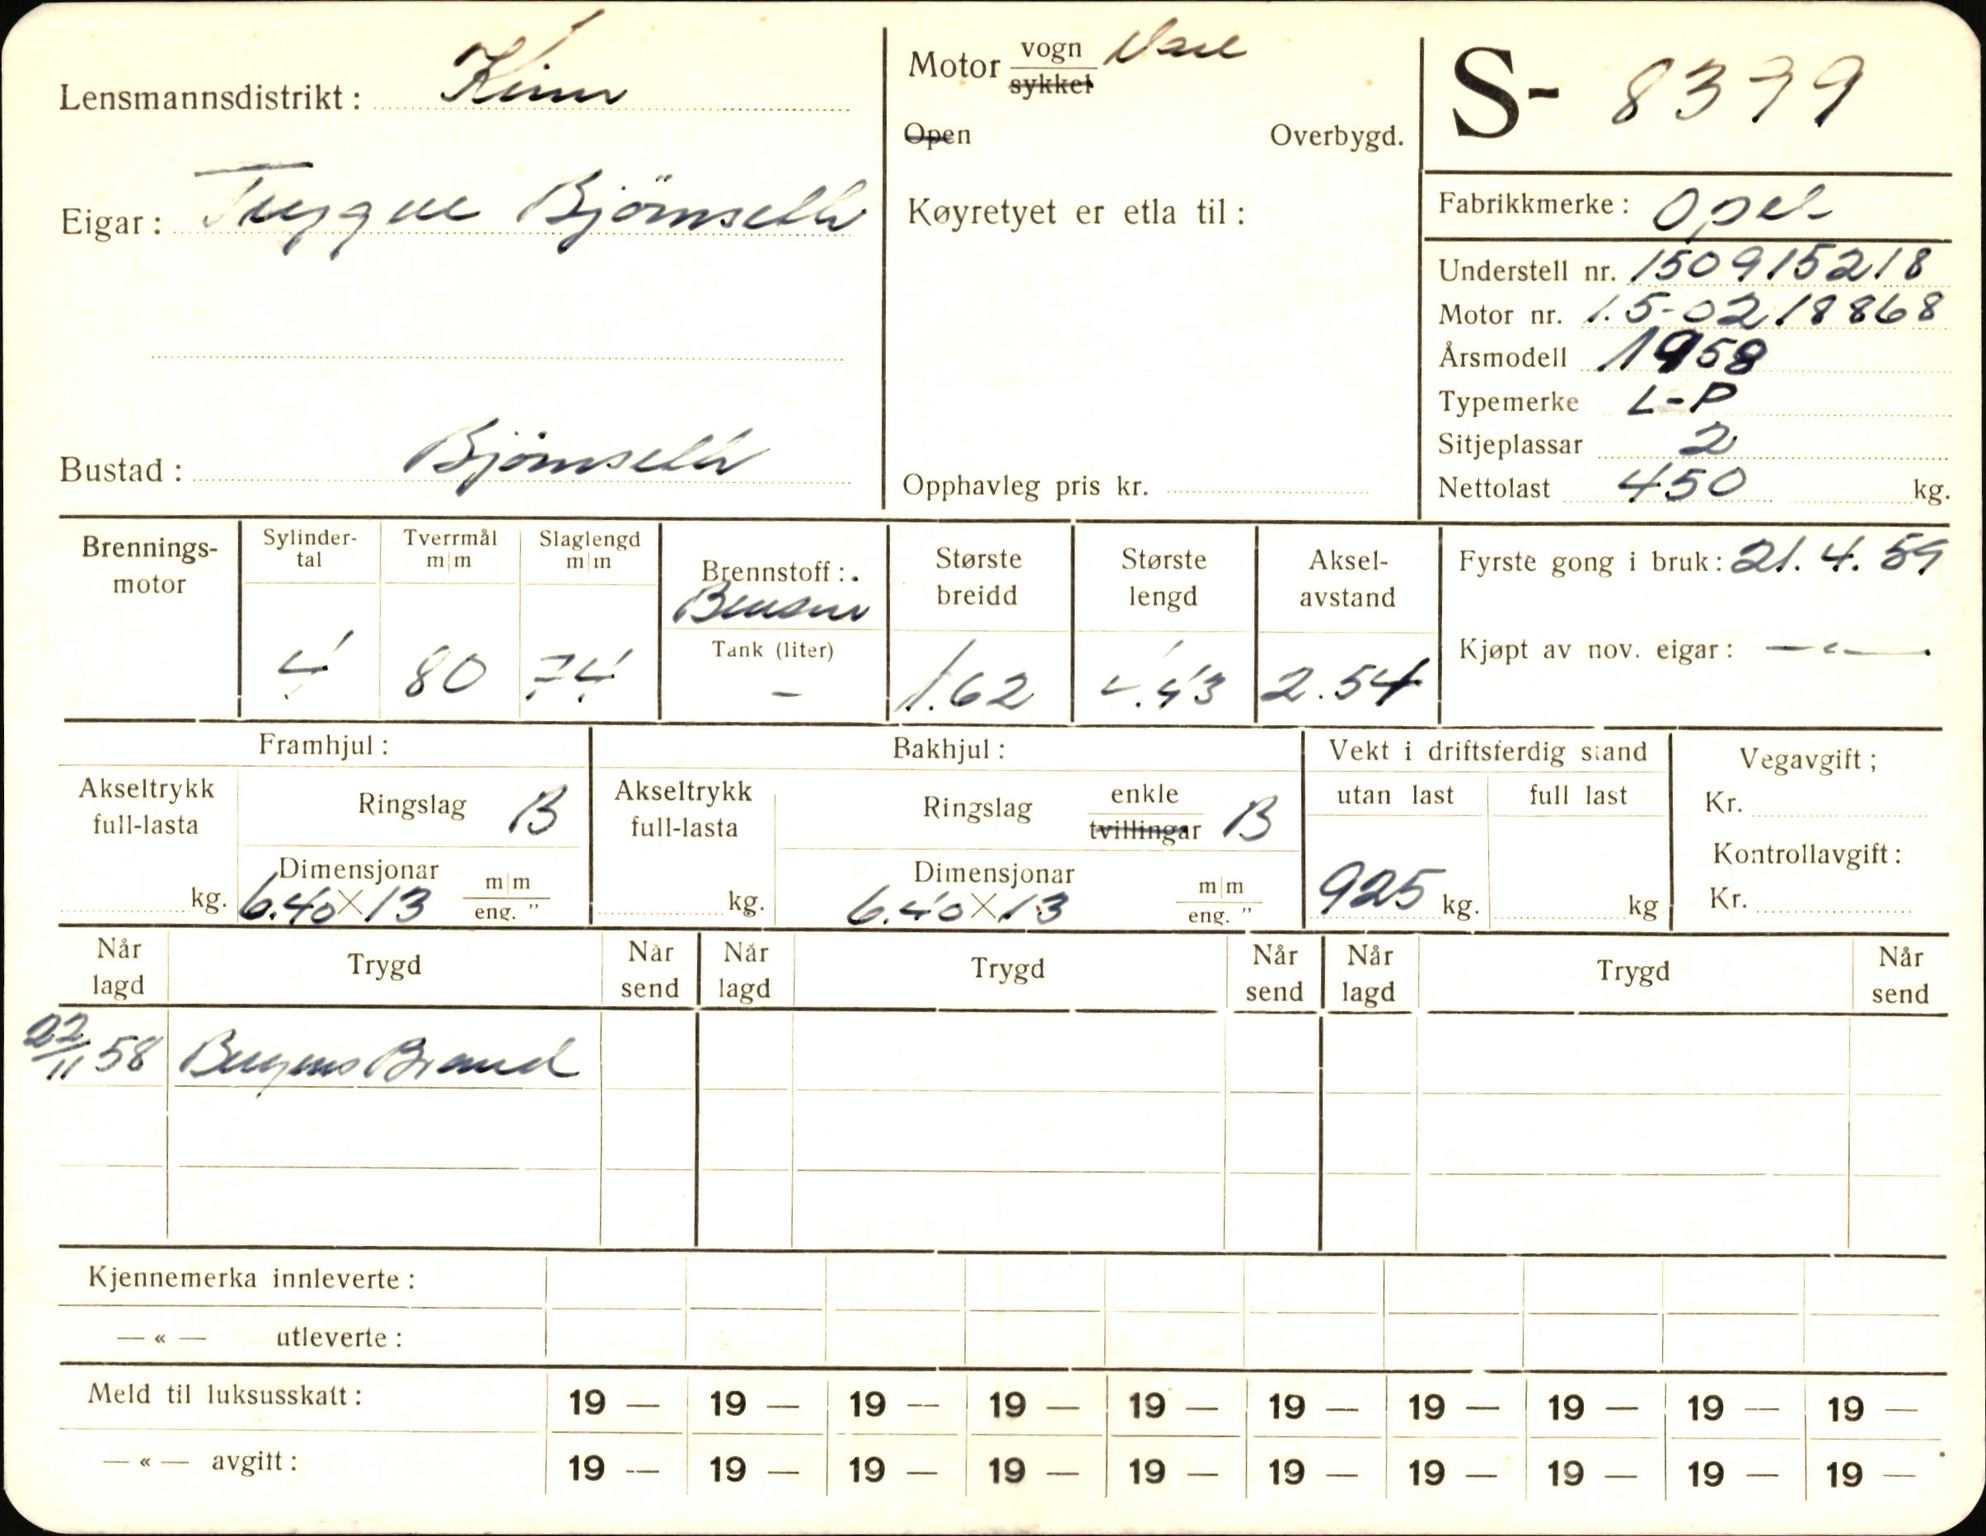 Lensmannsdistrikt: Kinn
Motor vogn Vare
sykkel
S- 8399
Open Overbygd.
Eigar: Trygve Bjørnseth
Køyretyet er etla til:
Fabrikkmerke: Opel
Understell nr. 150915218
Motor nr. 1.5-0218868
Årsmodell 1958
Typemerke L-P
Sitjeplassar 2
Bustad: Bjørnseth
Opphavleg pris kr.
Nettolast 450 kg.
Brennings-
motor
Sylinder-
tal
4
Tverrmål
m|m
80
Slaglengd
m|m
74
Brennstoff:
Bensin
Tank (liter)
-
Største
breidd
1.62
Største
lengd
4.43
Aksel-
avstand
2.54
Fyrste gong i bruk: 21.4.59
Kjøpt av nov. eigar: — « —
Framhjul:
Akseltrykk
full-lasta
kg.
Ringslag B
Dimensjonar
6.40 x 13 m|m
eng. "
Bakhjul:
Akseltrykk
full-lasta
kg.
Ringslag enkle
tvillingar B
Dimensjonar
6.40 x 13 m|m
eng. "
Vekt i driftsferdig stand
utan last full last
925 kg. kg
Vegavgift;
Kr.
Kontrollavgift:
Kr.
Når
lagd Trygd Når
send Når
lagd Trygd Når
send Når
lagd Trygd Når
send
22/11 58 Bergens Brand
Kjennemerka innleverte:
— « — utleverte:
Meld til luksusskatt: 19 — 19 — 19 — 19 — 19 — 19 — 19 — 19 — 19 — 19 —
— « — avgift: 19 — 19 — 19 — 19 — 19 — 19 — 19 — 19 — 19 — 19 —